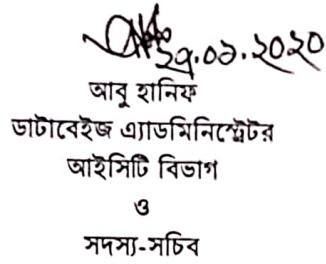 ২৯.০১.২০২০
আবু হানিফ
ডাটাবেইজ এ্যাডমিনিস্ট্রেটর
আইসিটি বিভাগ
ও
সদস্য-সচিব